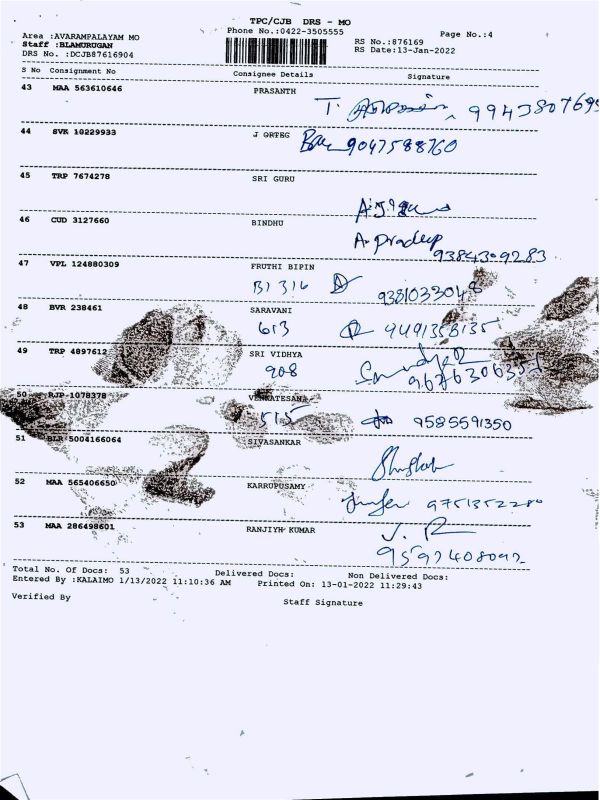 TPC/CJB DRS - MO
Area :AVARAMPALAYAM MO Phone No.:0422-3505555 Page No.:4
Staff :BLAMURUGAN RS No.:876169
DRS No. :DCJB87616904 RS Date:13-Jan-2022
S No Consignment No Consignee Details Signature
43 MAA 563610646 PRASANTH
T. 994380769
44 SVK 10229933 J ORTEG 9047588760
45 TRP 7674278 SRI GURU
46 CUD 3127660 BINDHU
A. Pradeep
9384309283
47 VPL 124880309 FRUTHI BIPIN
B1 316 9381033048
48 BVR 238461 SARAVANI
613 9491358135
49 TRP 4897612 SRI VIDHYA
908
50 RJP 1078378 VENKATESANA
515 9585591350
51 BLR 5004166064 SIVASANKAR
52 MAA 565406650 KARRUPUSAMY
9751352280
53 MAA 286498601 RANJIYH KUMAR
J. R
9597408092
Total No. Of Docs: 53 Delivered Docs: Non Delivered Docs:
Entered By :KALAIMO 1/13/2022 11:10:36 AM Printed On: 13-01-2022 11:29:43
Verified By Staff Signature